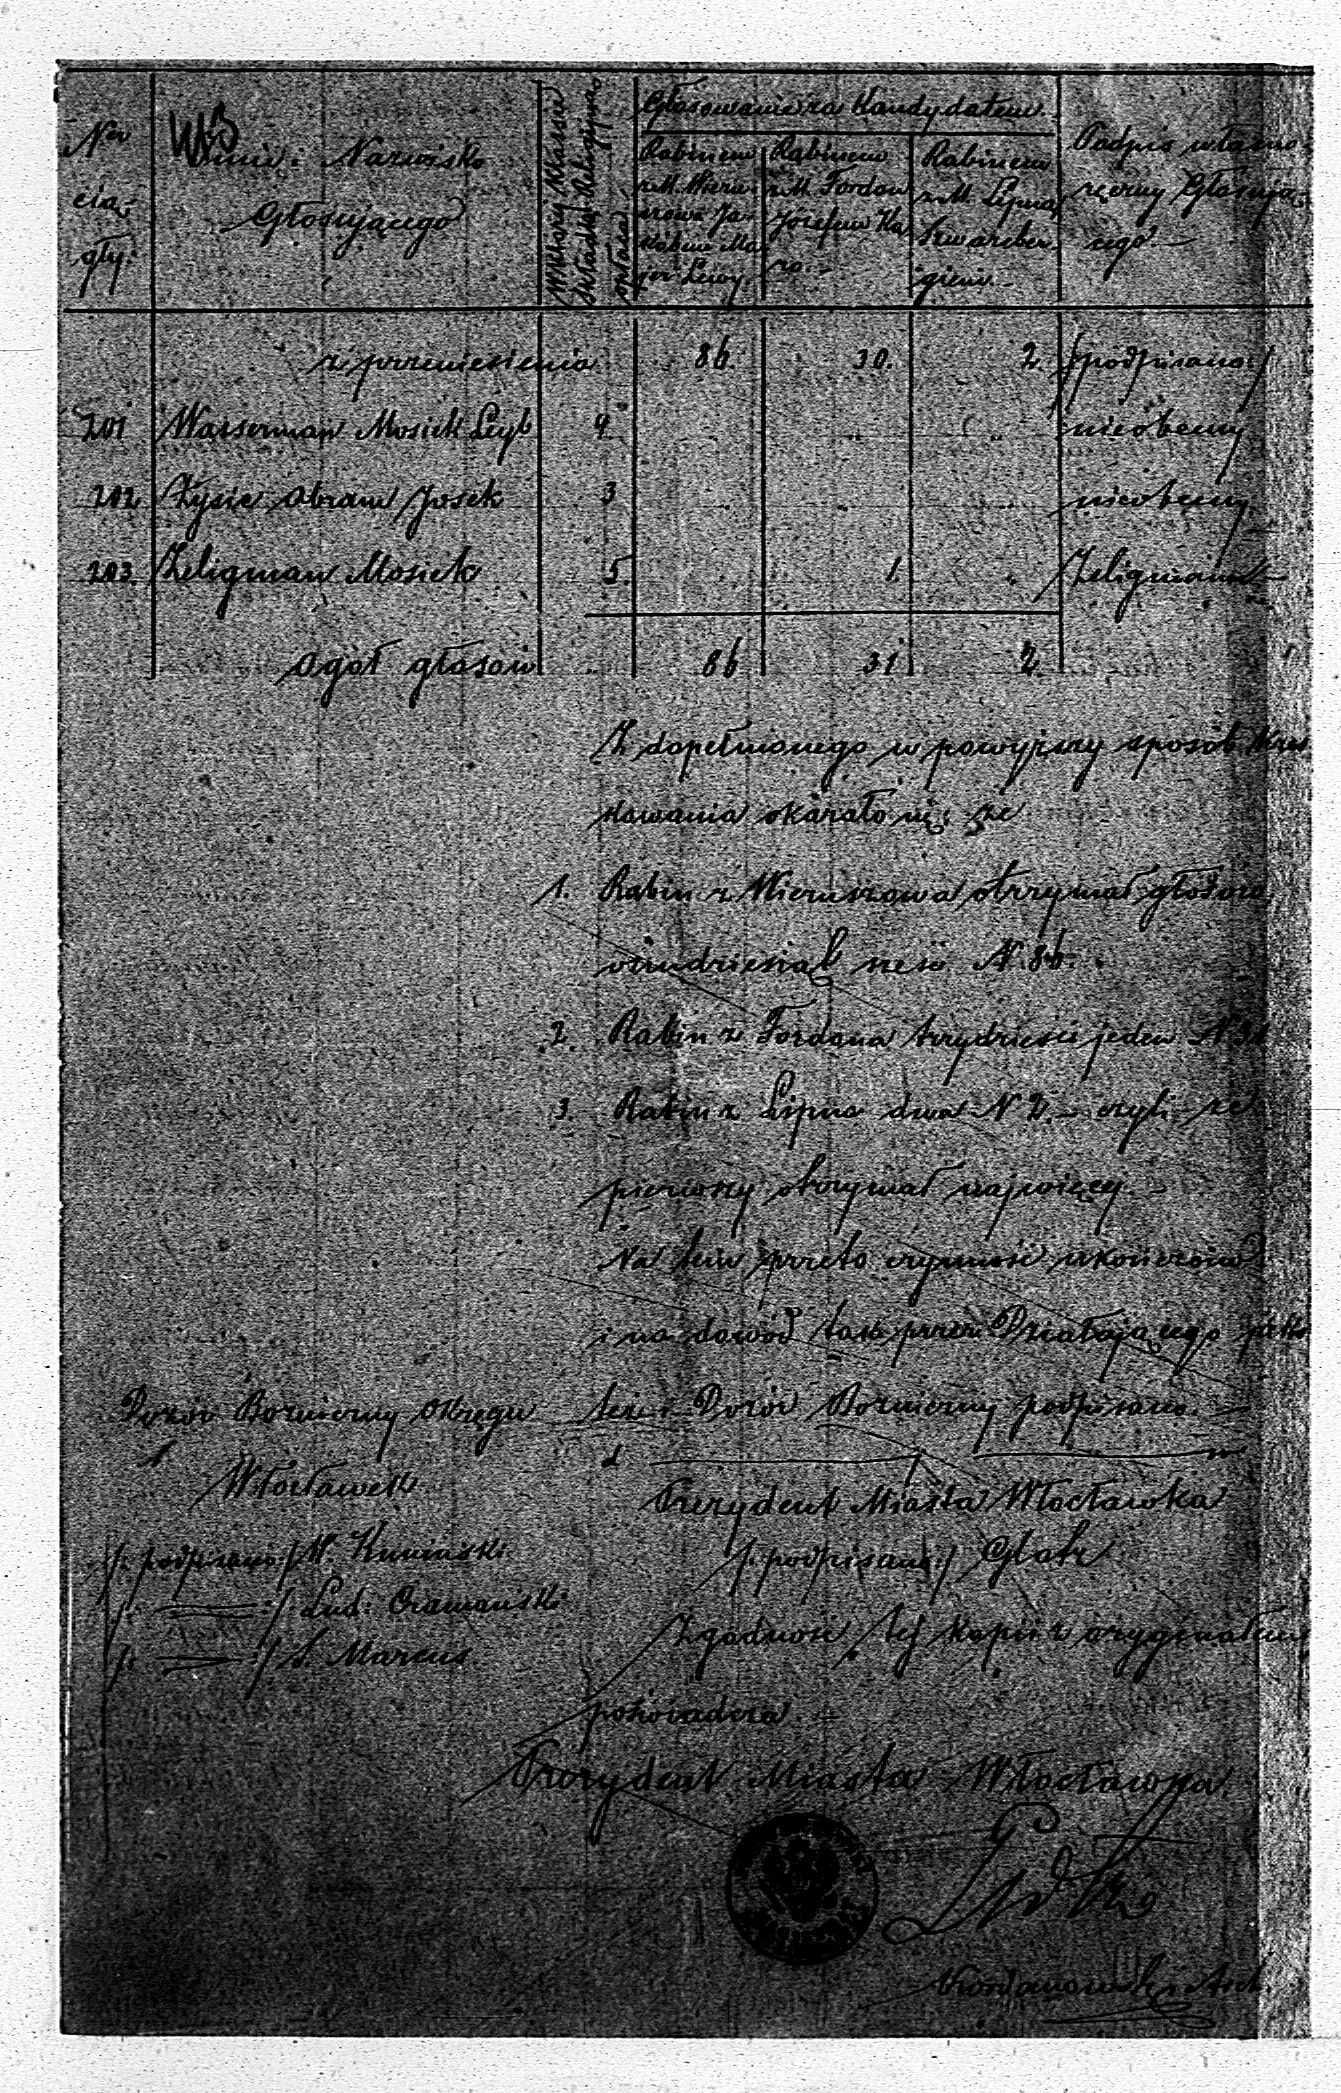 Głosowanie za Kandydatem
Ner cią- gły:
Imie i Nazwisko Głosującego
W której Klassie Składki Religijnej
Rabinem z M. Wieruszowa Jakobem Majer Lewy.
Rabinem z M. Fordon Józefem Karo.-
Rabinem z M. Lipna Szwarcbergiem.-
Podpis własnoręczny Głosującego.-
z przeniesienia 86. 30. 2. /podpisano:/
201 Wasserman Mosiek Leyb 4 " " nieobecny
202. Zysie Abram Josek 3 " " " nieobecny
203. Zeligman Mosiek 5. 1. " Zeligmann
Ogół głosów 86 31 2.
Z dopełnionego w powyższy sposób Kres
kowania okazało się: że
1. Rabin z Wieruszowa otrzymał głosów
osimdziesiąt sześć N. 86.
2. Rabin z Fordona trzydzieści jeden N 31
3. Rabin z Lipna dwa N 2. - czyli że
pierwszy otrzymał najwięcej. -
Na tem przeto czynność ukończono
i na dowód przez Działającego jako
też i Dozór Bozniczny podpisano. -
Dozór Bozniczny Okręgu
Włocławek
/: podpisano :/ H. Kumiński
/: = :/ Lud:
/: = :/ S. Marcus
Prezydent Miasta Włocławka
/: podpisano :/ Glotz
Zgodność tej Kopii z oryginałem
poświadcza. -
Prezydent Miasta Włocławka